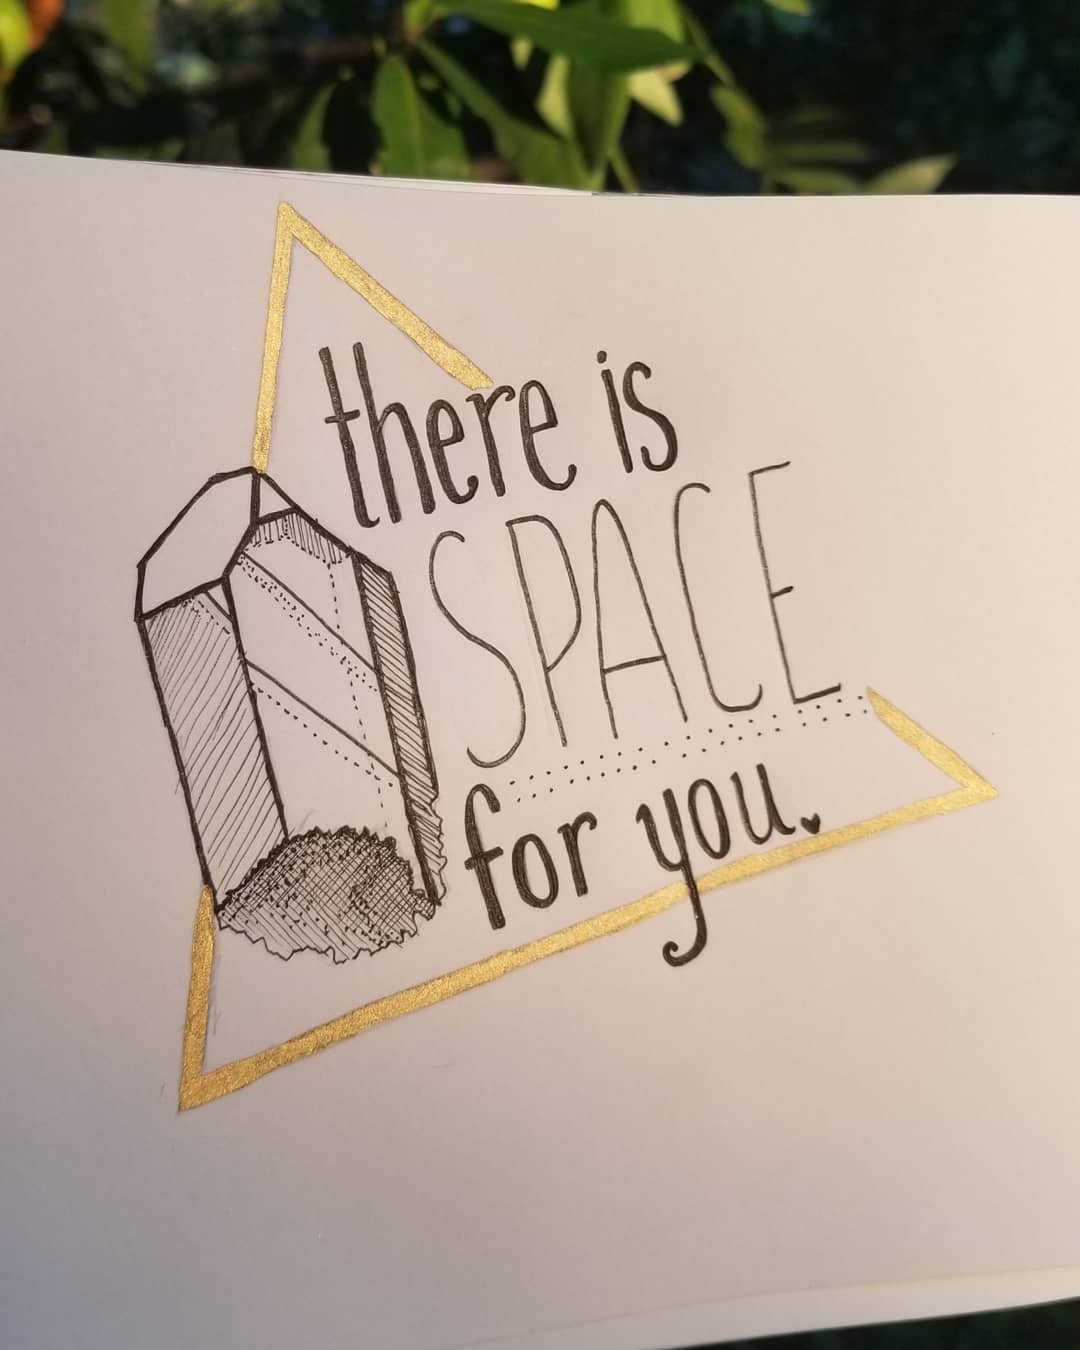 there is
SPACE
for you.